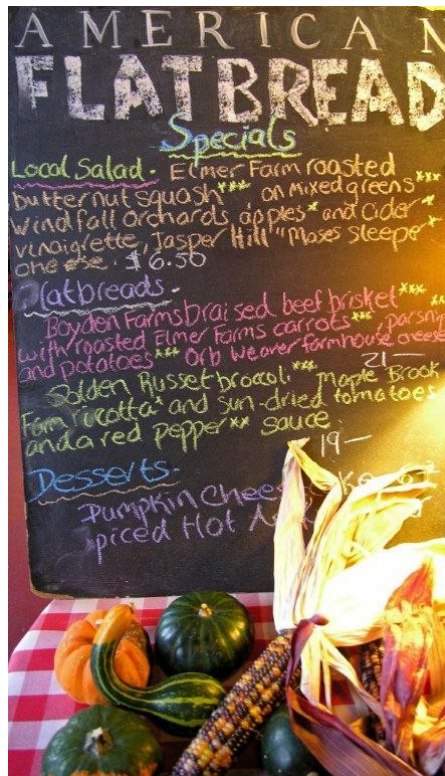 AMERICAN
FLATBREAD
Specials
Local Salad. Elmer Farm roasted
butternut squash*** on mixed greens***
Windfall Orchards apples* and cider*
vinaigrette, Jasper Hill "Moses Sleeper"*
cheese. $6.50
Flatbreads.
Boyden Farms braised beef brisket***
with roasted Elmer Farms carrots***, parsnip
and potatoes*** Orb Weaver farmhouse cheese
21—
Golden Russet broccoli*** Maple Brook
Farm ricotta* and sun-dried tomatoes
and a red pepper** sauce
19—
Desserts.
Pumpkin
Spiced Hot